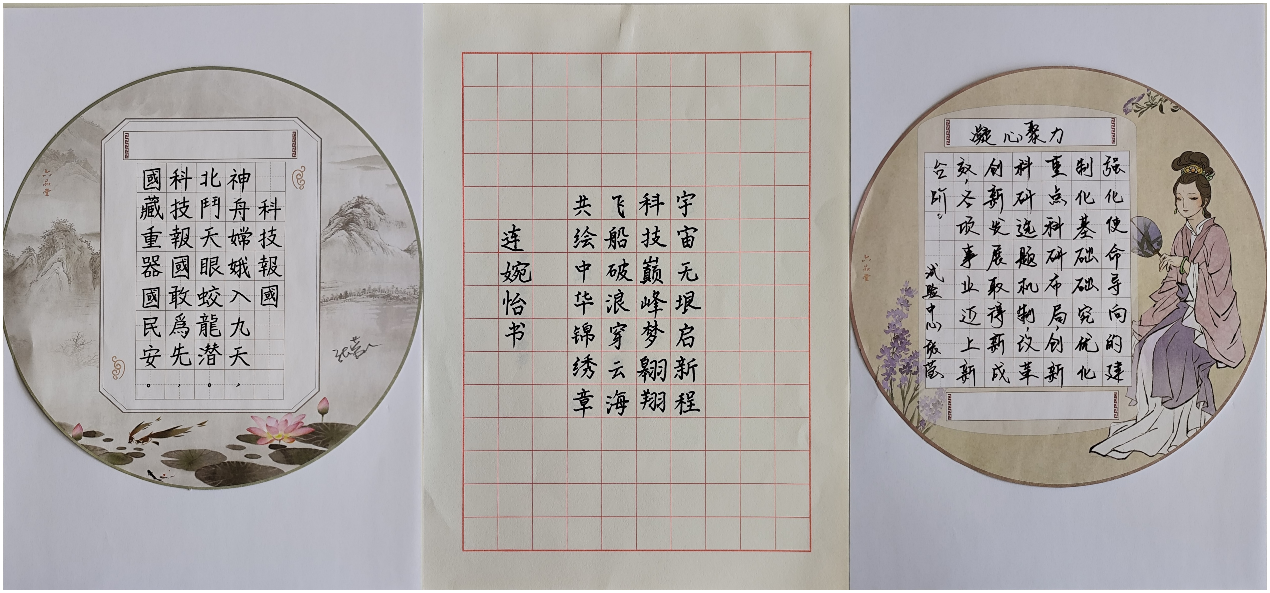 科技報國
神舟嫦娥入九天，
北鬥天眼蛟龍潛。
科技報國敢爲先，
國藏重器國民安。
六品堂
宇宙无垠启新程
科技巅峰梦翱翔
飞船破浪穿云海
共绘中华锦绣章
连婉怡书
凝心聚力
强化使命导向的建
制化基础础究优化
重点科研布局，创新
科研选题机制，改革
创新发展取得新成
效，各项事业迈上新
台阶。
中心
六品堂